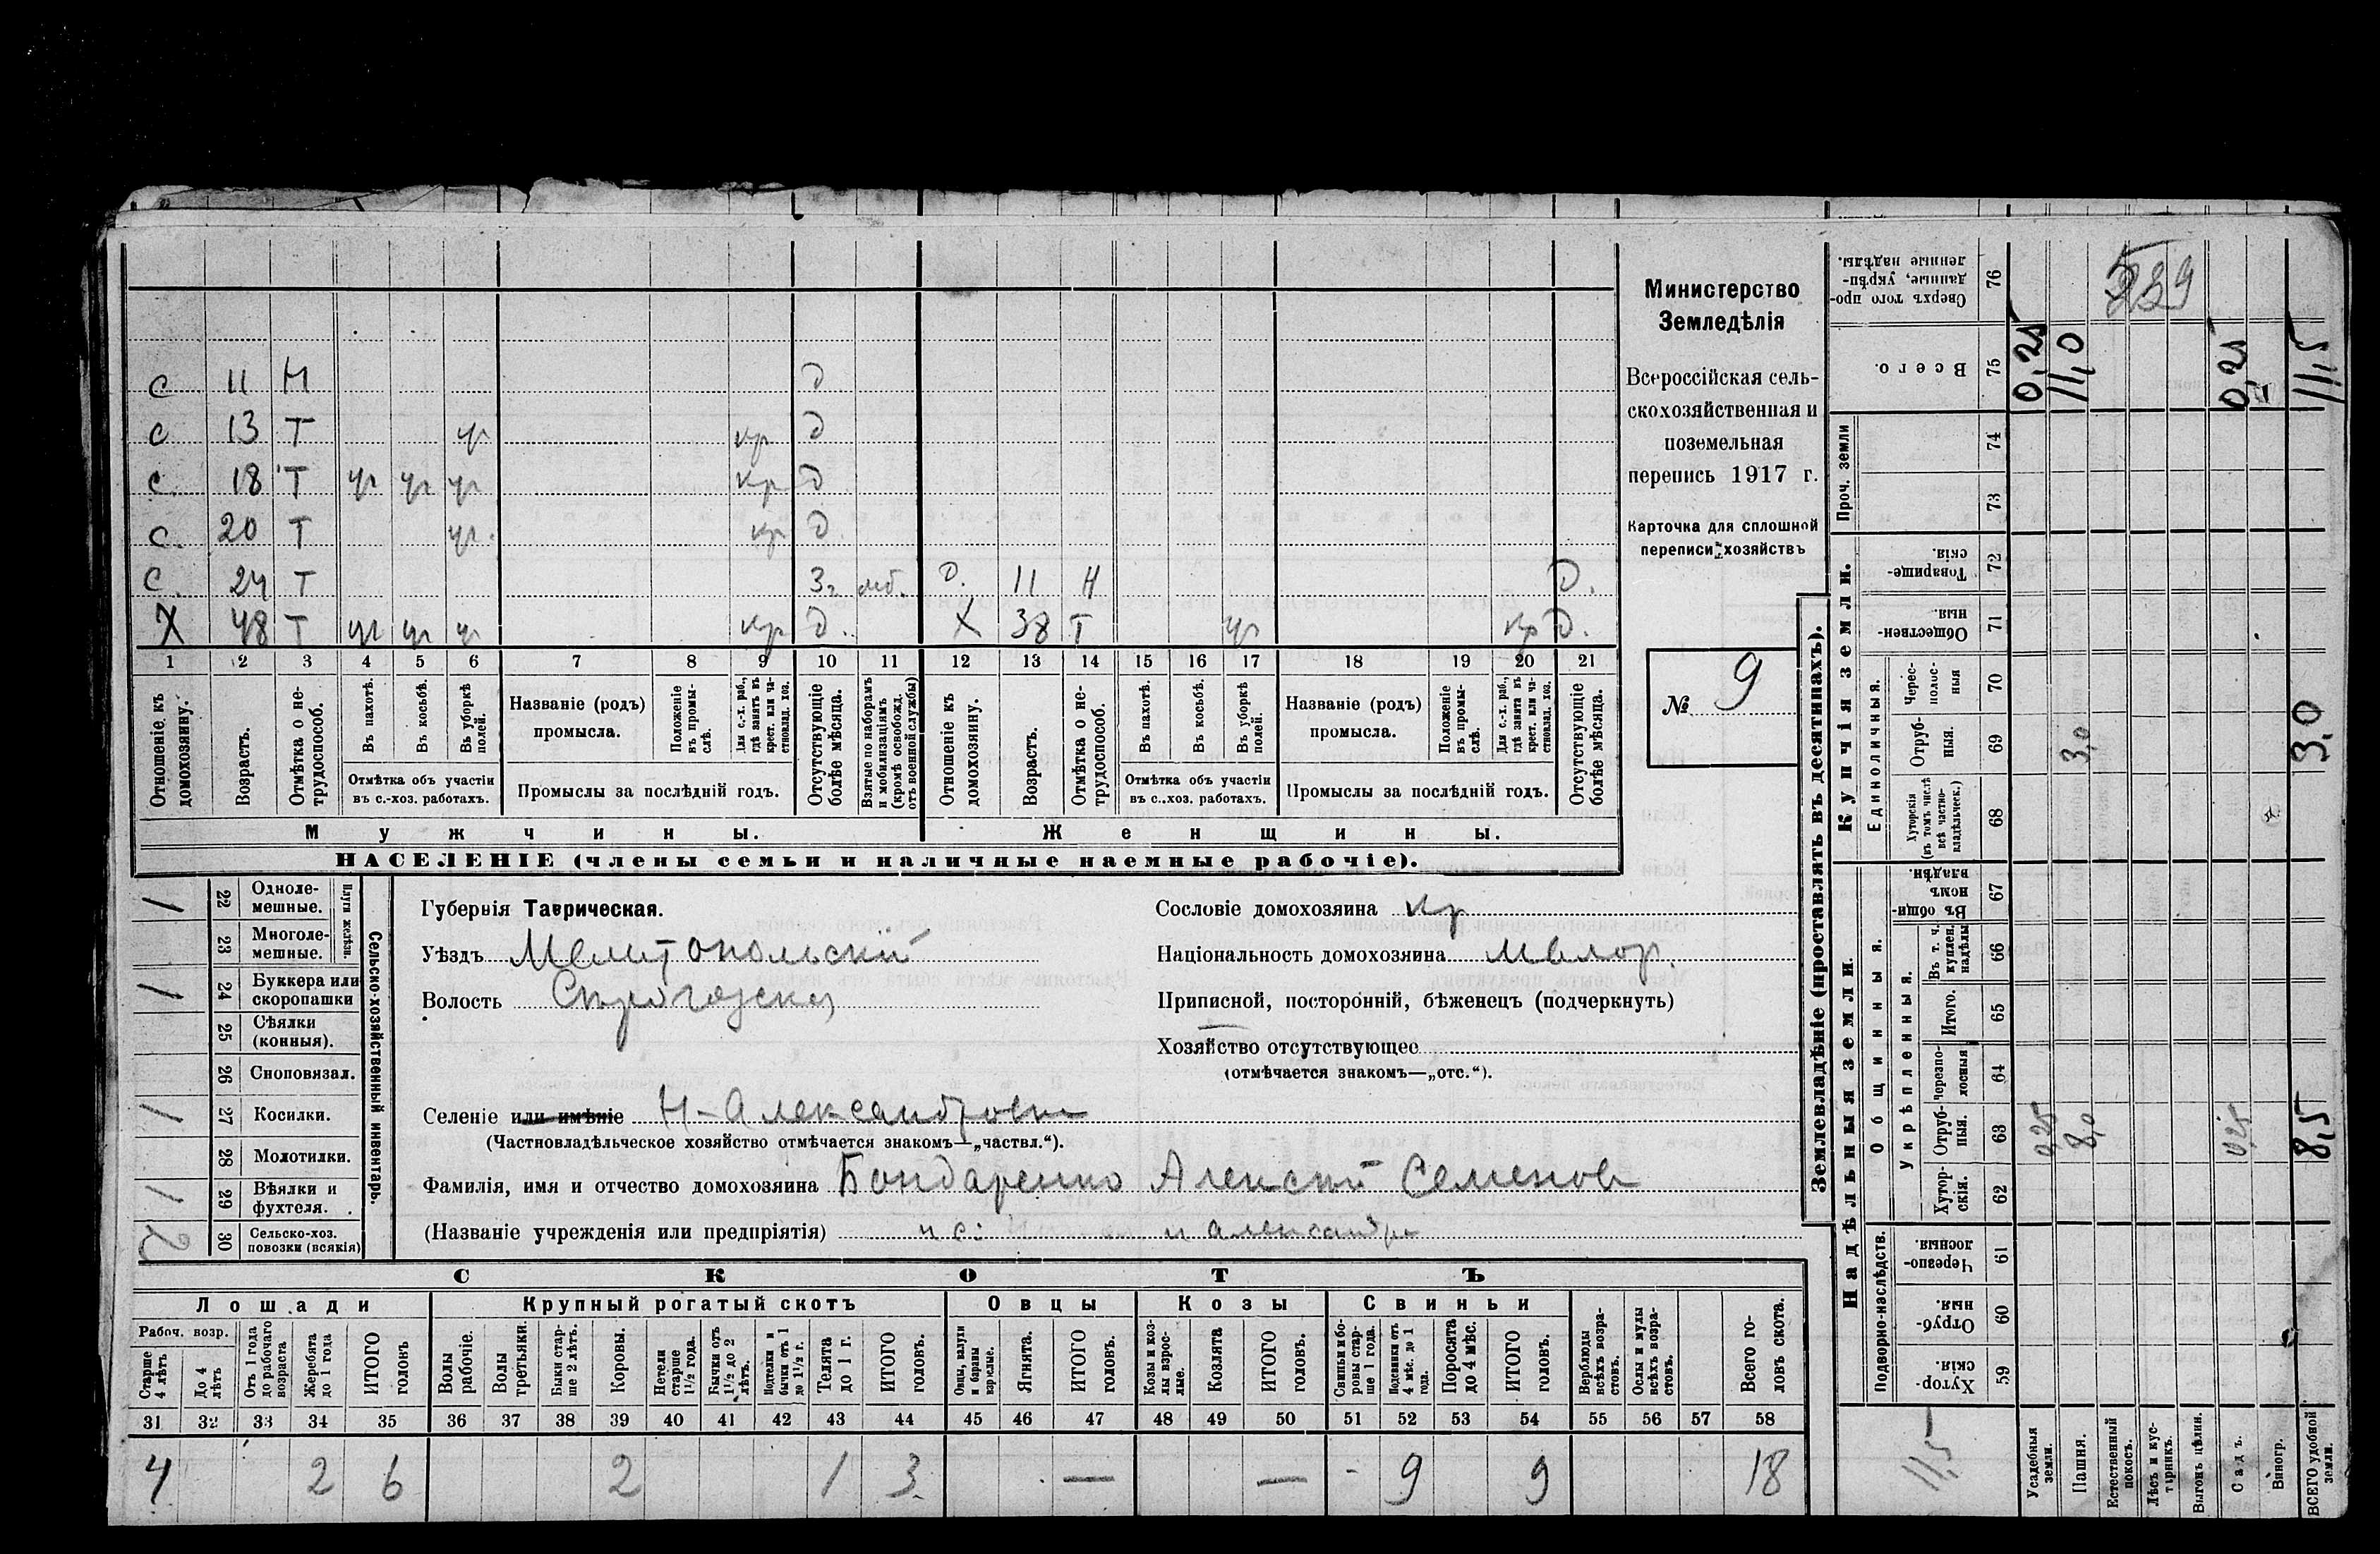 с 11 Н Д
с 13 Т ч кр Д
с. 18 Т ч ч ч кр Д
с. 20 Т ч. кр Д
с. 24 Т 3 моб. Д. 11 Н Д.
Х 48 Т ч ч ч кр Д. Х 38 Т ч кр Д.
1 2 3 4 5 6 7 8 9 10 11 12 13 14 15 16 17 18 19 20 21
Отношеніе къ домохозяину.
Возрастъ.
Отмѣтка о нетрудоспособ.
Въ пахотѣ.
Въ косьбѣ.
Въ уборкѣ полей.
Отмѣтка объ участіи
въ с.-хоз. работахъ.
Названіе (родъ)
промысла.
Положеніе въ промыслѣ.
Для с.-х. раб., гдѣ занятъ въ крест. или частновлад. хоз.
Промыслы за послѣдній годъ.
Отсутствующіе болѣе мѣсяца.
Взятые по наборамъ и мобилизаціямъ (кромѣ освобожд. отъ военной службы)
Отношеніе къ домохозяину.
Возрастъ.
Отмѣтка о нетрудоспособ.
Въ пахотѣ.
Въ косьбѣ.
Въ уборкѣ полей.
Отмѣтка объ участіи
въ с.-хоз. работахъ.
Названіе (родъ)
промысла.
Положеніе въ промыслѣ.
Для с.-х. раб., гдѣ занята въ крест. или частновлад. хоз.
Промыслы за послѣдній годъ.
Отсутствующіе болѣе мѣсяца.
Мужчины. Женщины.
НАСЕЛЕНІЕ (члены семьи и наличные наемные рабочіе).
Министерство
Земледѣлія
Всероссійская сель-
скохозяйственная и
поземельная
перепись 1917 г.
Карточка для сплошной
переписи хозяйствъ
№ 9
1 22 Одноле-
мешные.
23 Многоле-
мешные.
Плуги желѣзн.
1 24 Буккера или
скоропашки
25 Сѣялки
(конныя).
26 Сноповязал.
1 27 Косилки.
28 Молотилки.
1 29 Вѣялки и
фухтеля.
2 30 Сельско-хоз.
повозки (всякія)
Сельско-хозяйственный инвентарь.
Губернія Таврическая.
Уѣздъ Мелитопольскій
Волость
Сословіе домохозяина кр
Національность домохозяина Малор.
Приписной, посторонній, бѣженецъ (подчеркнуть)
Хозяйство отсутствующее
(отмѣчается знакомъ—„отс.“).
Селеніе или имѣніе Н-Александровка
(Частновладѣльческое хозяйство отмѣчается знакомъ—„частвл.“).
Фамилія, имя и отчество домохозяина Бондаренко Алексѣй Семенов
(Названіе учрежденія или предпріятія)
СКОТЪ
Лошади Крупный рогатый скотъ Овцы Козы Свиньи
Рабоч. возр.
Старше 4 лѣтъ
До 4 лѣтъ
Отъ 1 года до рабочаго возраста
Жеребята до 1 года
ИТОГО головъ
Волы рабочіе.
Волы третьяки.
Быки старше 2 лѣтъ.
Коровы.
Нетели старше 1½ года.
Бычки отъ 1½ до 2 лѣтъ.
Подтелки и бычки отъ 1 до 1½ г.
Телята до 1 г.
ИТОГО головъ.
Овцы, валухи и бараны взрослые.
Ягнята.
ИТОГО головъ.
Козы и козлы взрослые.
Козлята
ИТОГО головъ.
Свиньи и боровы старше 1 года.
Подсвинки отъ 4 мѣс. до 1 года.
Поросята до 4 мѣс.
ИТОГО головъ.
Верблюды всѣхъ возрастовъ.
Ослы и мулы всѣхъ возрастовъ.
Всего головъ скота.
31 32 33 34 35 36 37 38 39 40 41 42 43 44 45 46 47 48 49 50 51 52 53 54 55 56 57 58
4 2 6 2 1 3 — — - 9 9 18
Землевладѣніе (проставлять въ десятинахъ).
Надѣльныя земли. Купчія земли. Проч. земли
Подворно-наслѣдств.
Общинныя.
Укрѣпленныя.
Единоличныя.
59 Хуторскія.
60 Отрубныя.
61 Черезполосныя
62 Хуторскія.
63 Отрубныя.
64 Черезполосныя
65 Итого.
66 Въ т. ч. куплен. надѣлы
67 Въ общинномъ владѣн.
68 Хуторскія (въ томъ числѣ всѣ частновладѣльческ.)
69 Отрубныя.
70 Чересполосныя
71 Общественныя.
72 Товарищескія.
73
74
75 Всего.
76 Сверхъ того проданные, укрѣпленные надѣлы.
Усадебныя земли. 0,25 0,25
Пашня. 8,0 3,0 11,0
Естественный покосъ.
Лѣсъ и кустарникъ.
Выгонъ цѣлин.
Садъ. 0,25 0,25
Виногр.
ВСЕГО удобной земли. 8,5 3,0 11,5
11,5